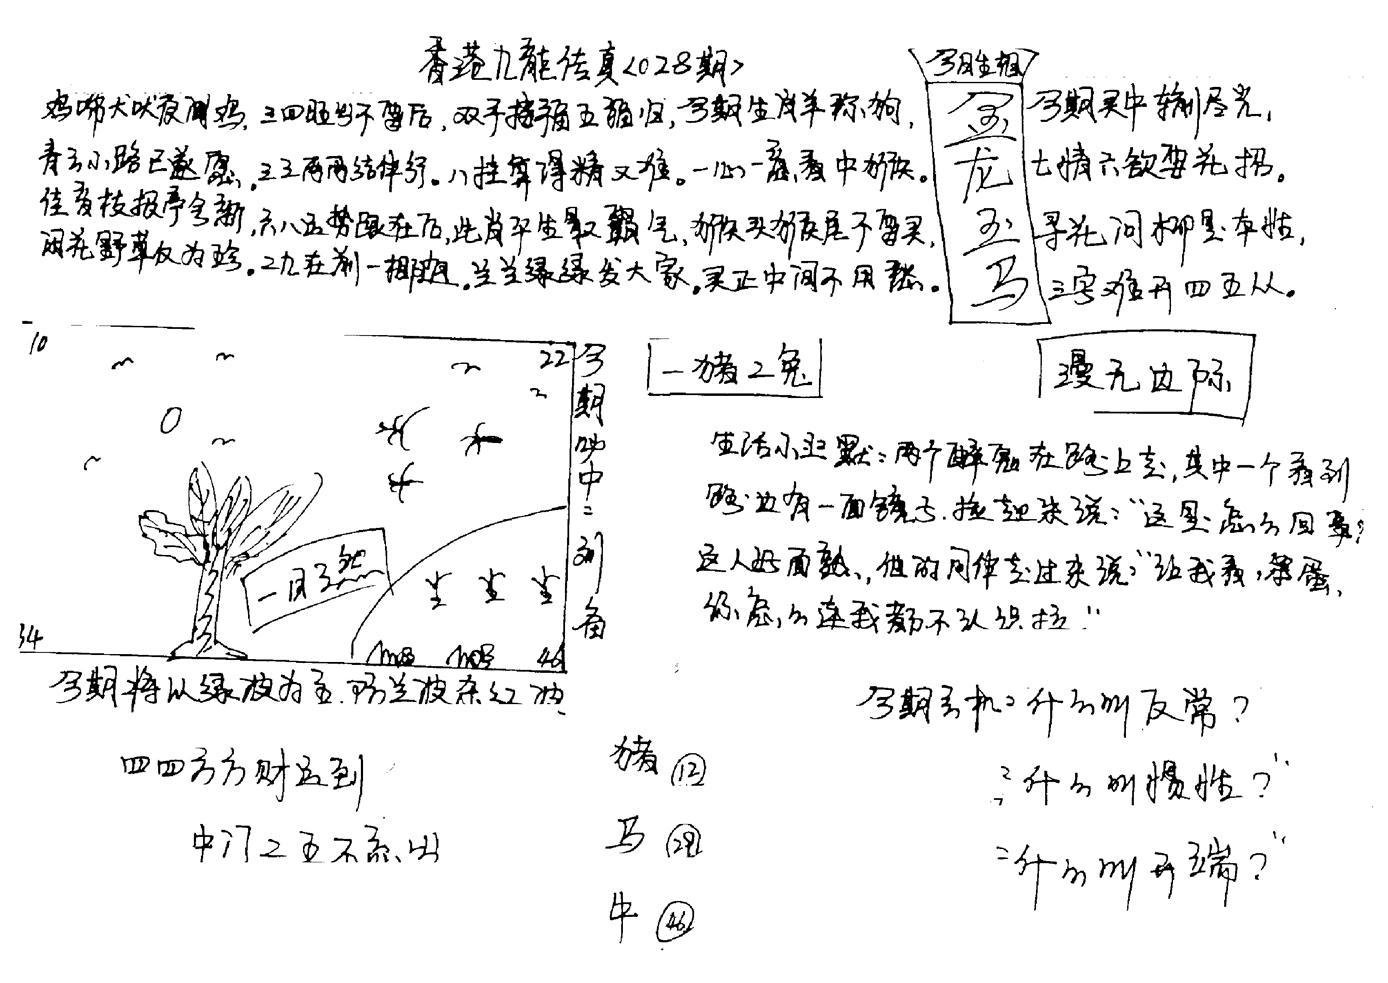 香港九龍传真<028期>
今期生相
金龙玉马
鸡啼犬吠夜闻鸡,三四旺出不留后,双手接福五福归,今期生肖羊称狗,
今期买中转列尽光,
青云小路已遂愿,三三两两结伴行。八挂算得精又难。一心一意看中猴。
七情六欲要花招。
佳音枝报序台新,六八运势跟在后,此肖平生最霸气,猴头猴尾不留买,
寻花问柳是本性,
闲花野草权为珍。二九在前一摇摇,兰兰绿绿发大家,买正中间不用愁。
三字难开四五从。
10
22
34
46
一目了然
今期必中=列备
一猪二兔
漫无边际
生活小幽默:两个醉鬼在路上走,其中一个看到
路边有一面镜子,捡起来说:"这是怎么回事?
这人好面熟,他的同伴走过来说:"让我看,笨蛋,
你怎么连我都不认识拉"
今期将以绿波为主,防兰波杂红波
四四方方财运到
中门二五不流出
猪 12
马 29
牛 46
今期玄机:什么叫反常?
:"什么叫惯性?"
:"什么叫开端?"